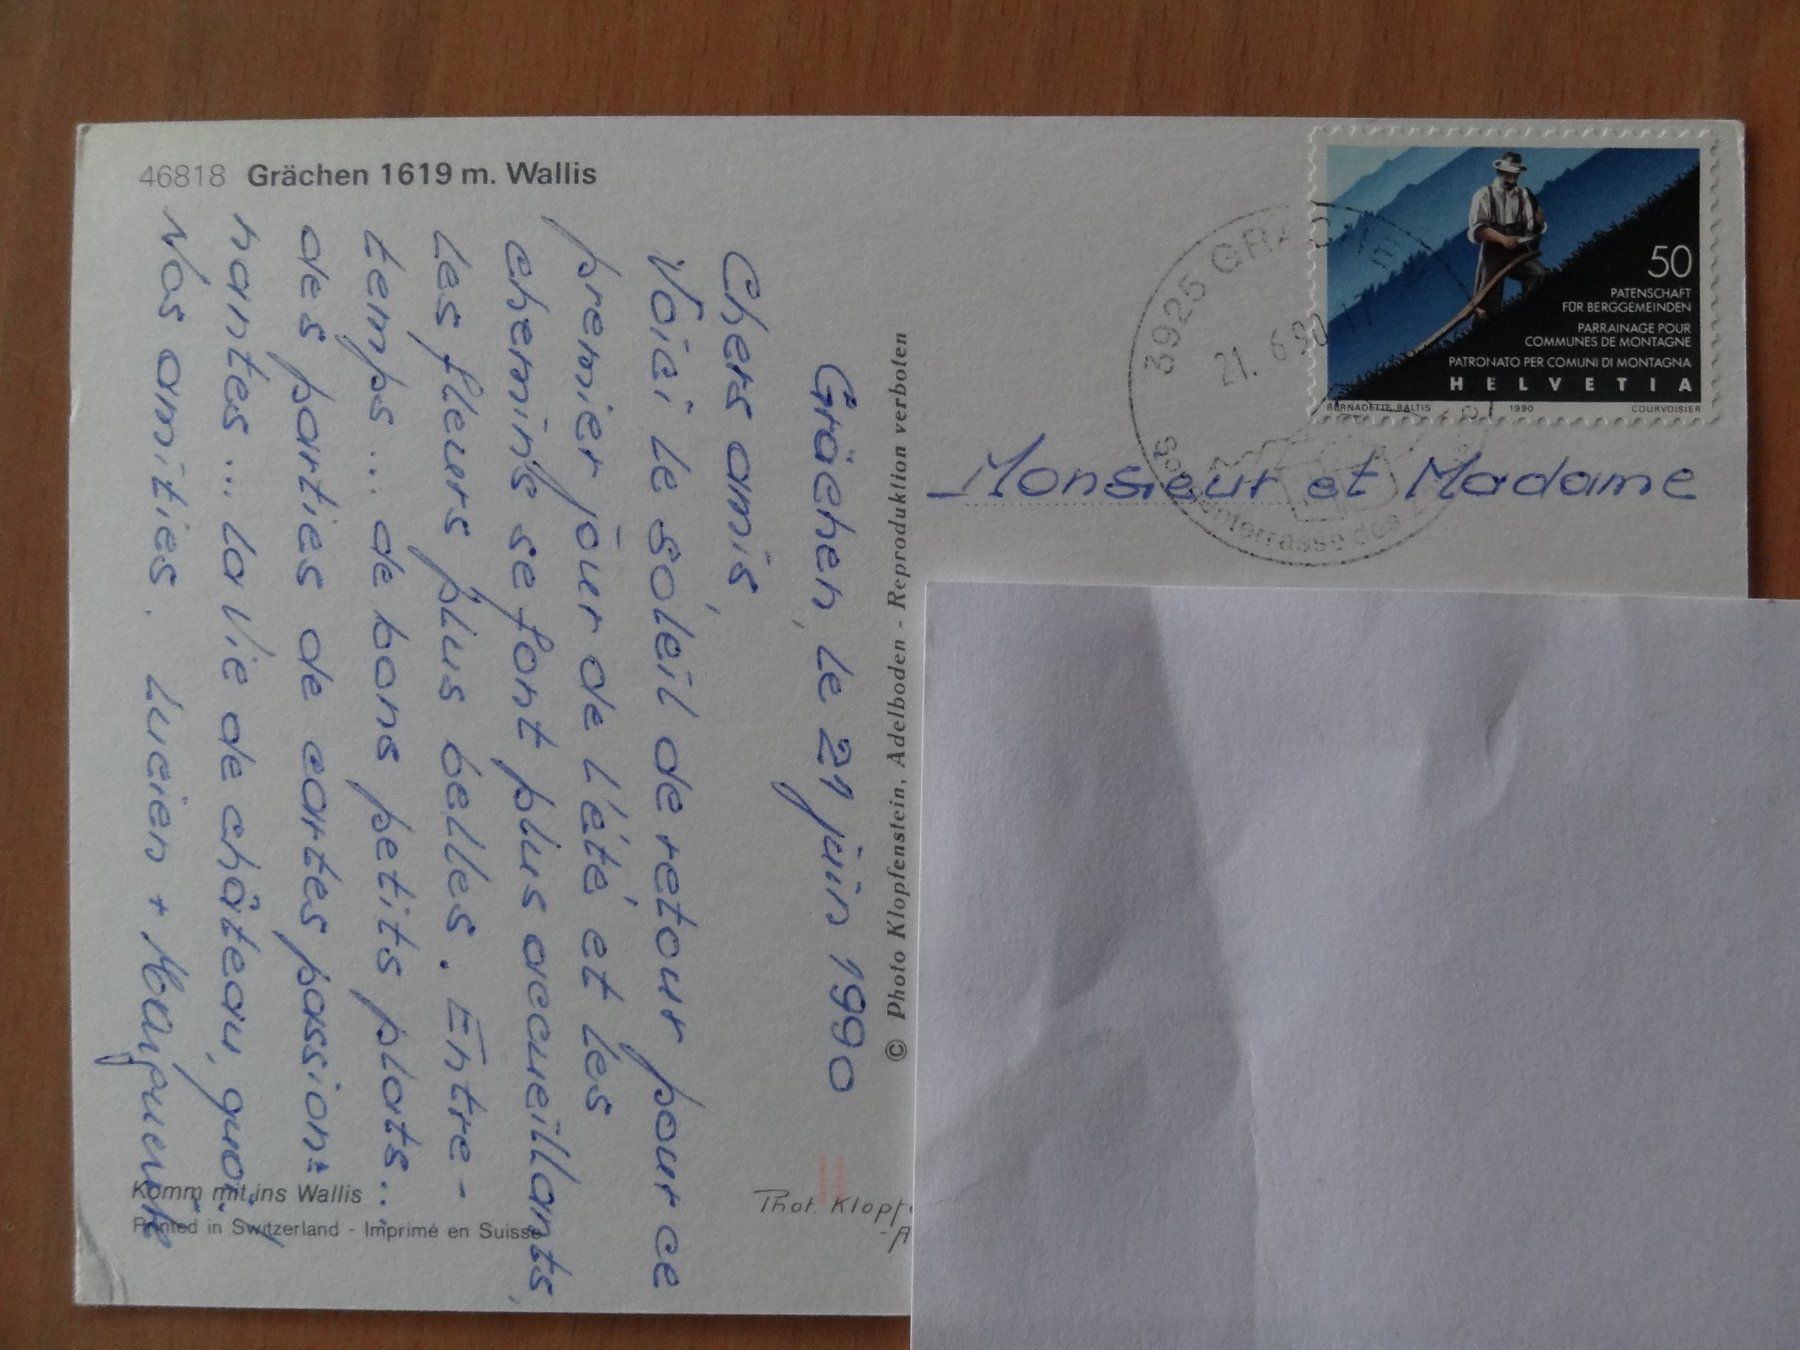 46818 Grächen 1619 m. Wallis
Grächen, le 21 juin 1990
Chers amis,
Voici le soleil de retour pour ce
premier jour de l'été et les
chemins se font plus accueillants,
les fleurs plus belles. Entre-
temps... de bons petits plats...
des parties de cartes passion=
nantes... la vie de château, quoi!
Nos amitiés. Lucien +
Komm mit ins Wallis
Printed in Switzerland - Imprimé en Suisse
© Photo Klopfenstein, Adelboden - Reproduktion verboten
Phot. Klopf
3925 GRÄCHEN
21. 6.90 17
50
PATENSCHAFT
FÜR BERGGEMEINDEN
PARRAINAGE POUR
COMMUNES DE MONTAGNE
PATRONATO PER COMUNI DI MONTAGNA
HELVETIA
BERNADETTE BALTIS 1990 COURVOISIER
Monsieur et Madame